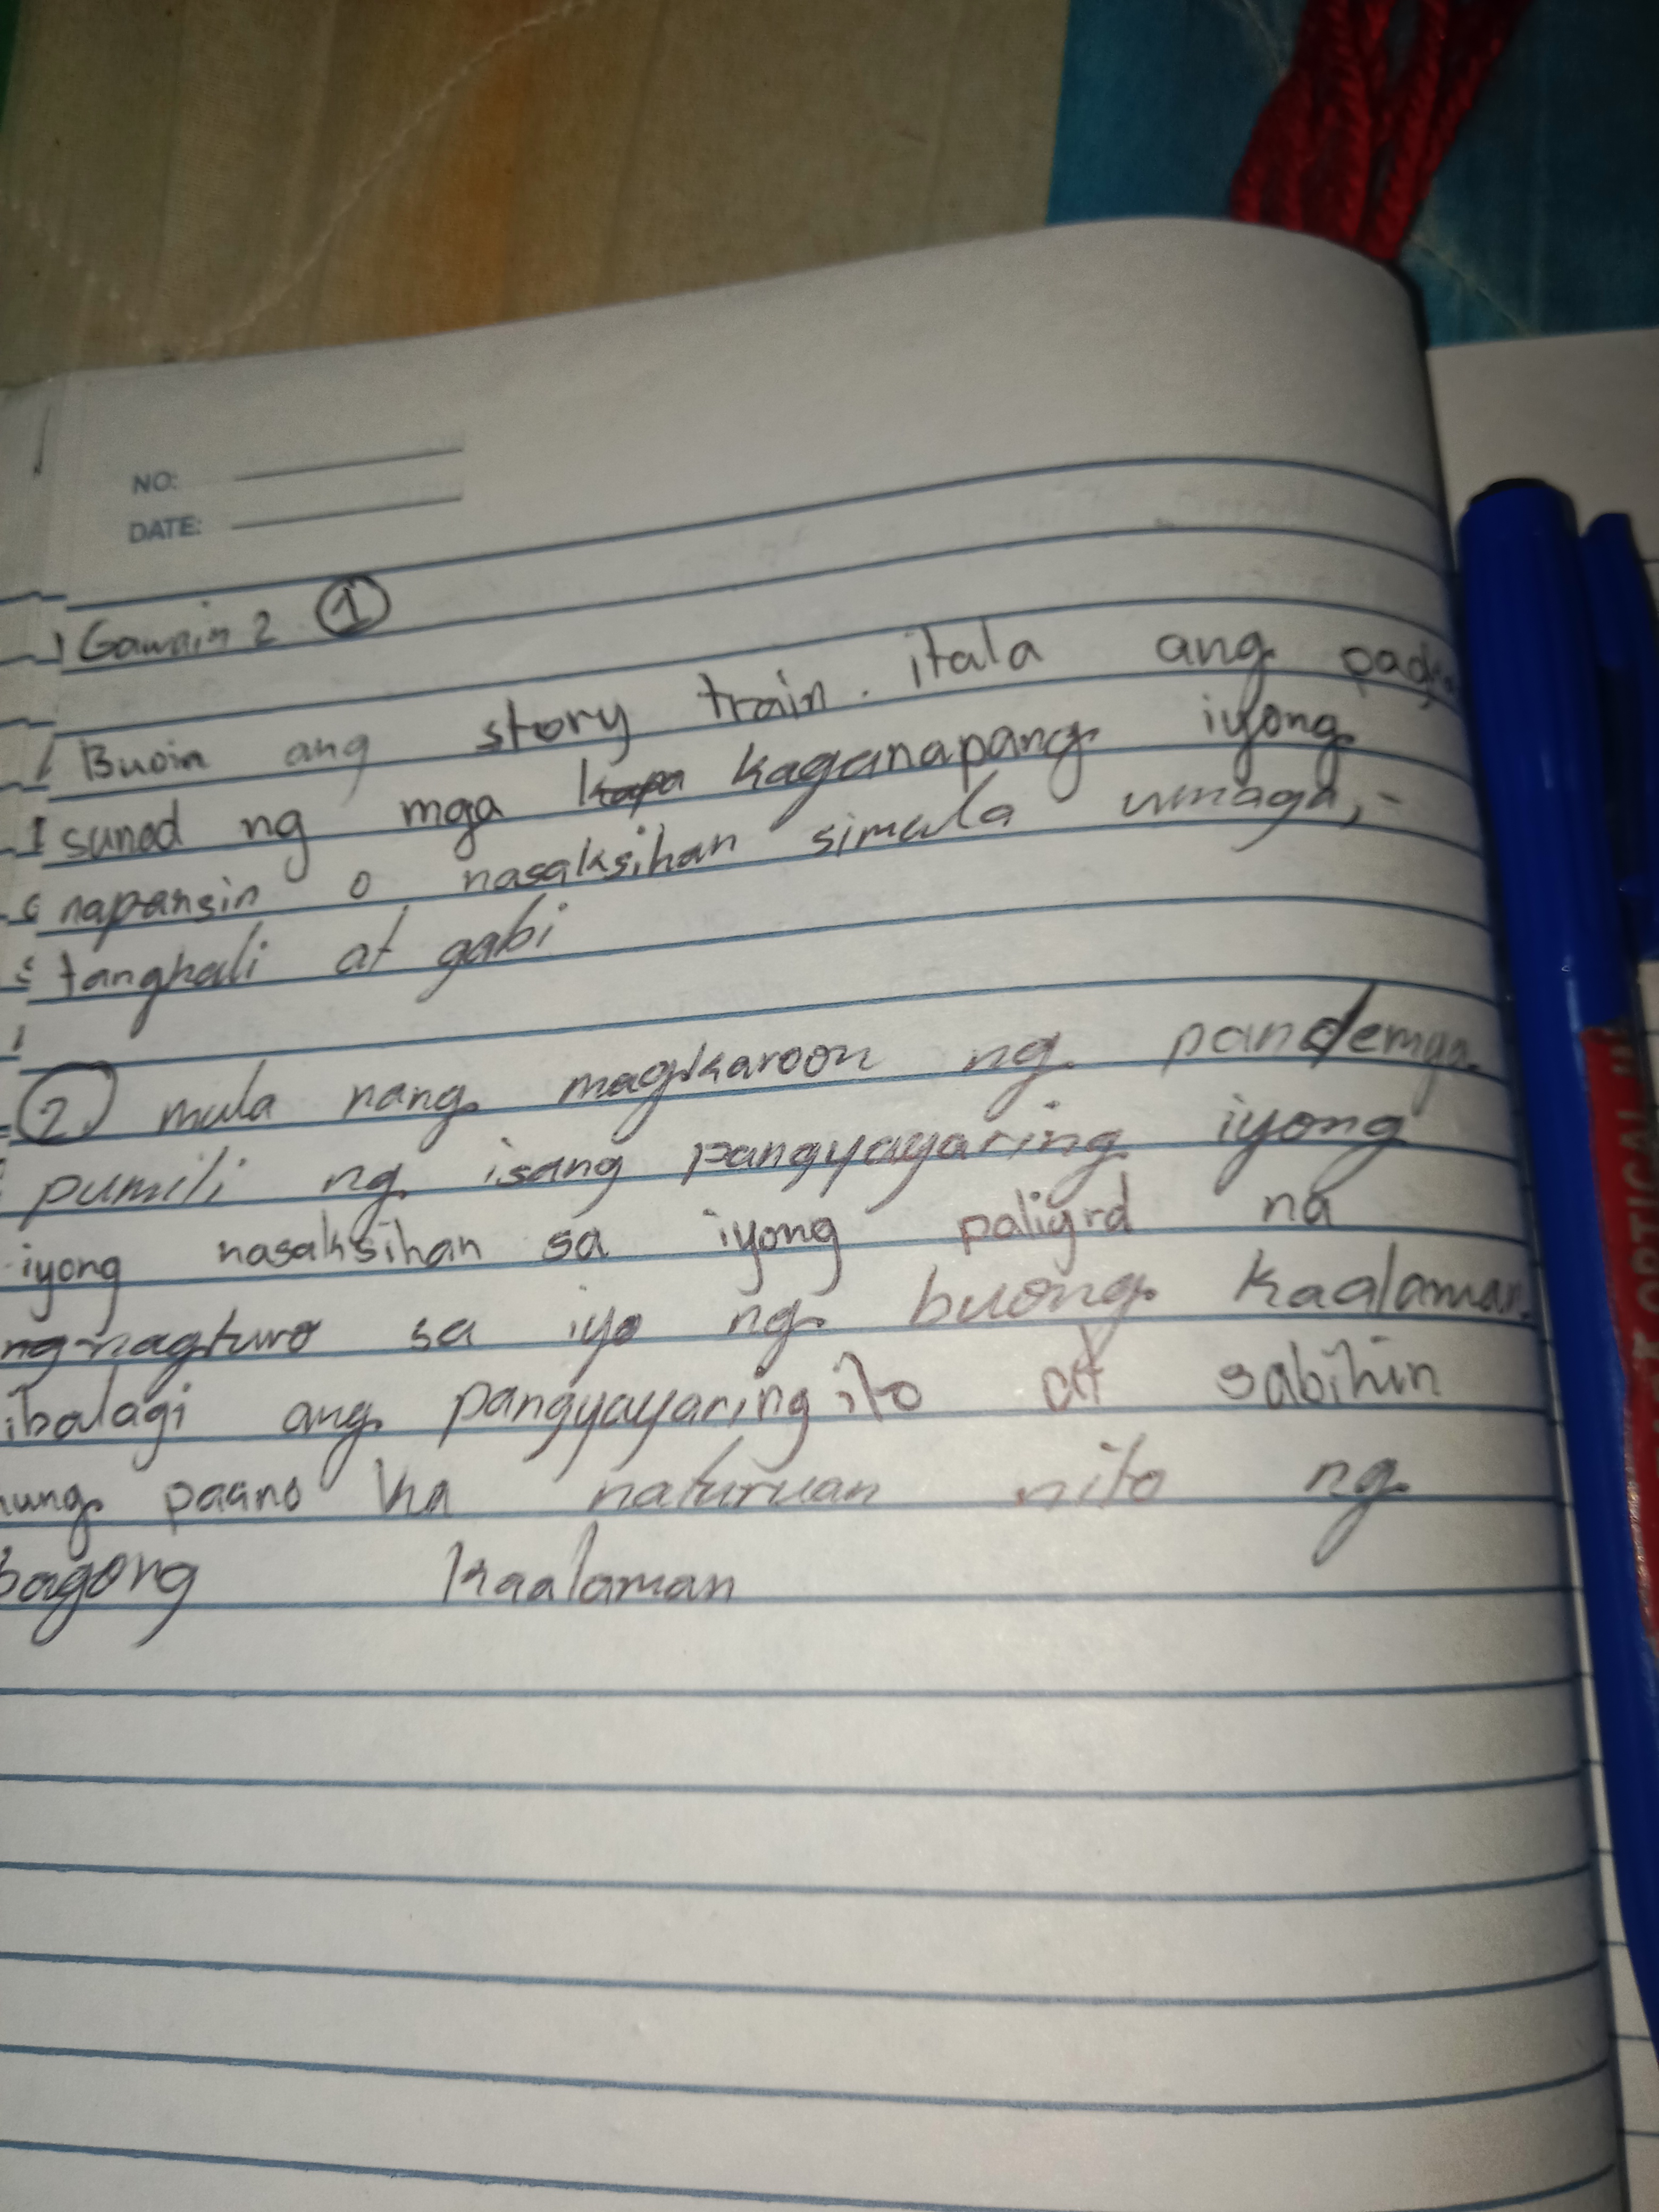 NO:
DATE:
Gawain 2 ①
Buoin ang story train. itala ang
sunod ng mga kaganapang iyong
napansin o nasaksihan simula umaga,-
tanghali at gabi
② mula nang magkaroon ng pandemya
pumili ng isang pangyayaring iyong
iyong nasaksihan sa iyong paligrd na
ng nagturo sa iyo ng buong kaalaman.
ibalagi ang pangyayaring ito at sabihin
paano ka naturuan nito ng
bagong kaalaman
OPTICAL